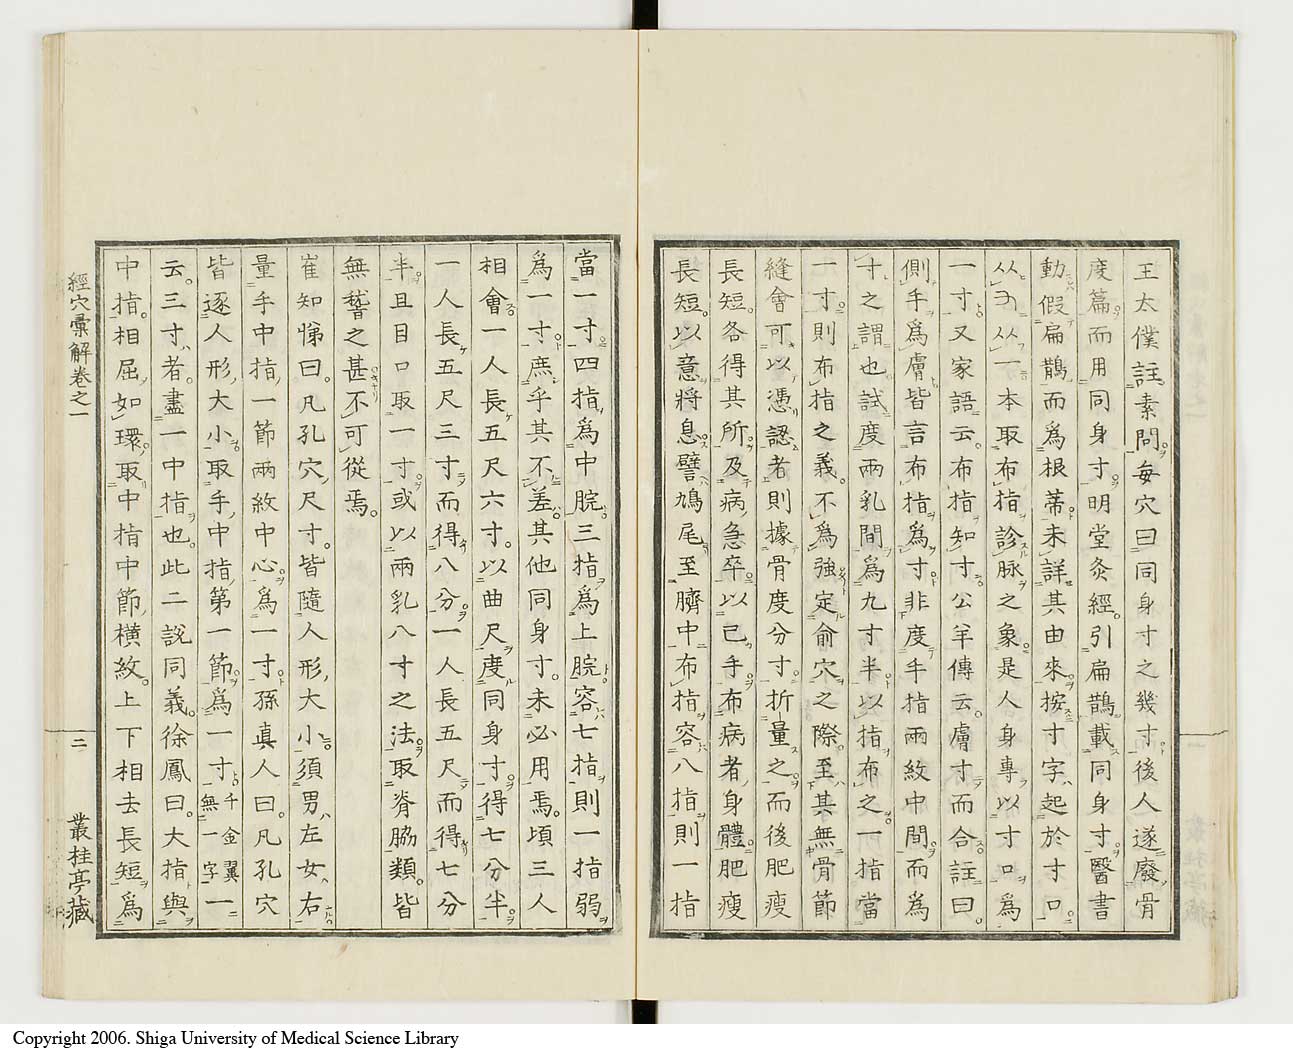 王太僕註素問每穴曰同身寸之幾寸後人遂廢骨
度篇而用同身寸明堂灸經引扁鵲載同身寸醫書
動假扁鵲而爲根蒂未詳其由來按寸字起於寸口
从又从一本取布指診脉之象是人身專以寸口爲
一寸又家語云布指知寸公羊傳云膚寸而合註曰
側手爲膚皆言布指爲寸非度手指兩紋中間而爲
寸之謂也試度兩乳間爲九寸半以指布之一所指當
一寸則布指之義不爲強定俞穴之際至其無骨節
縫會可以憑認者則據骨度分寸折量之而後肥瘦
長短各得其所及病急卒以己手布病者身體肥瘦
長短以意將息譬鳩尾至臍中布指容八指則一指
當一寸四指爲中脘三指爲上脘容七指則一指弱
爲一寸庶乎其不差其他同身寸未必用焉頃三人
相會一人長五尺六寸以曲尺度同身寸得七分半
一人長五尺三寸而得八分一人長五尺而得七分
半且目口取一寸或以兩乳八寸之法取脊脇類皆
無稽之甚不可從焉
崔知悌曰凡孔穴尺寸皆隨人形大小須男左女右
量手中指一節兩紋中心爲一寸孫真人曰凡孔穴
皆逐人形大小取手中指第一節爲一寸千金翼無一字一
云三寸者盡一中指也此二說同義徐鳳曰大指與
中指相屈如環取中指中節橫紋上下相去長短爲
經穴彙解卷之一
二
叢桂亭藏
Copyright 2006. Shiga University of Medical Science Library